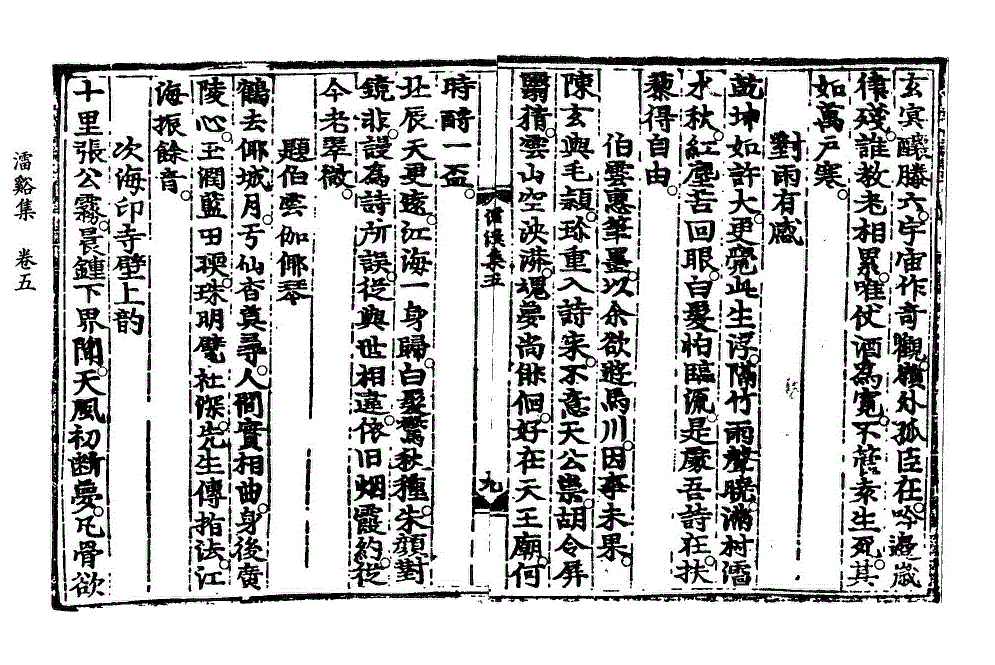 玄冥釀騰六宇宙作奇觀嶺外孤臣在吟邊歲
律殘誰教老相累唯伏酒為寬不管泰生死其
如萬戶寒
對雨有感
乾坤如許大更覺此生浮隔竹雨聲曉滿村澑
水秋紅塵苦回眼白髮怕臨流是處吾詩在扶
藜得自由
伯雲惠筆墨以余欲遊馬川因事未果
陳玄與毛穎珍重入詩來不意天公祟胡令屏
翳猜雲山空泱漭塊夢尚徘徊好在天王廟何
時酹一盃
北辰天更遠江海一身歸白髮驚秋種朱顏對
鏡非謾為詩所誤從與世相違依旧烟霞約從
今老翠微
題伯雲伽倻琴
鶴去倻城月丂仙杳莫尋人間實相曲身後廣
陵心玉潤藍田暎珠明甓社深先生傳指法江
海振餘音
次海印寺壁上韵
十里張公霧晨鍾下界聞天風初断夢凡骨欲
澑谿集五
九
澑谿集 卷五